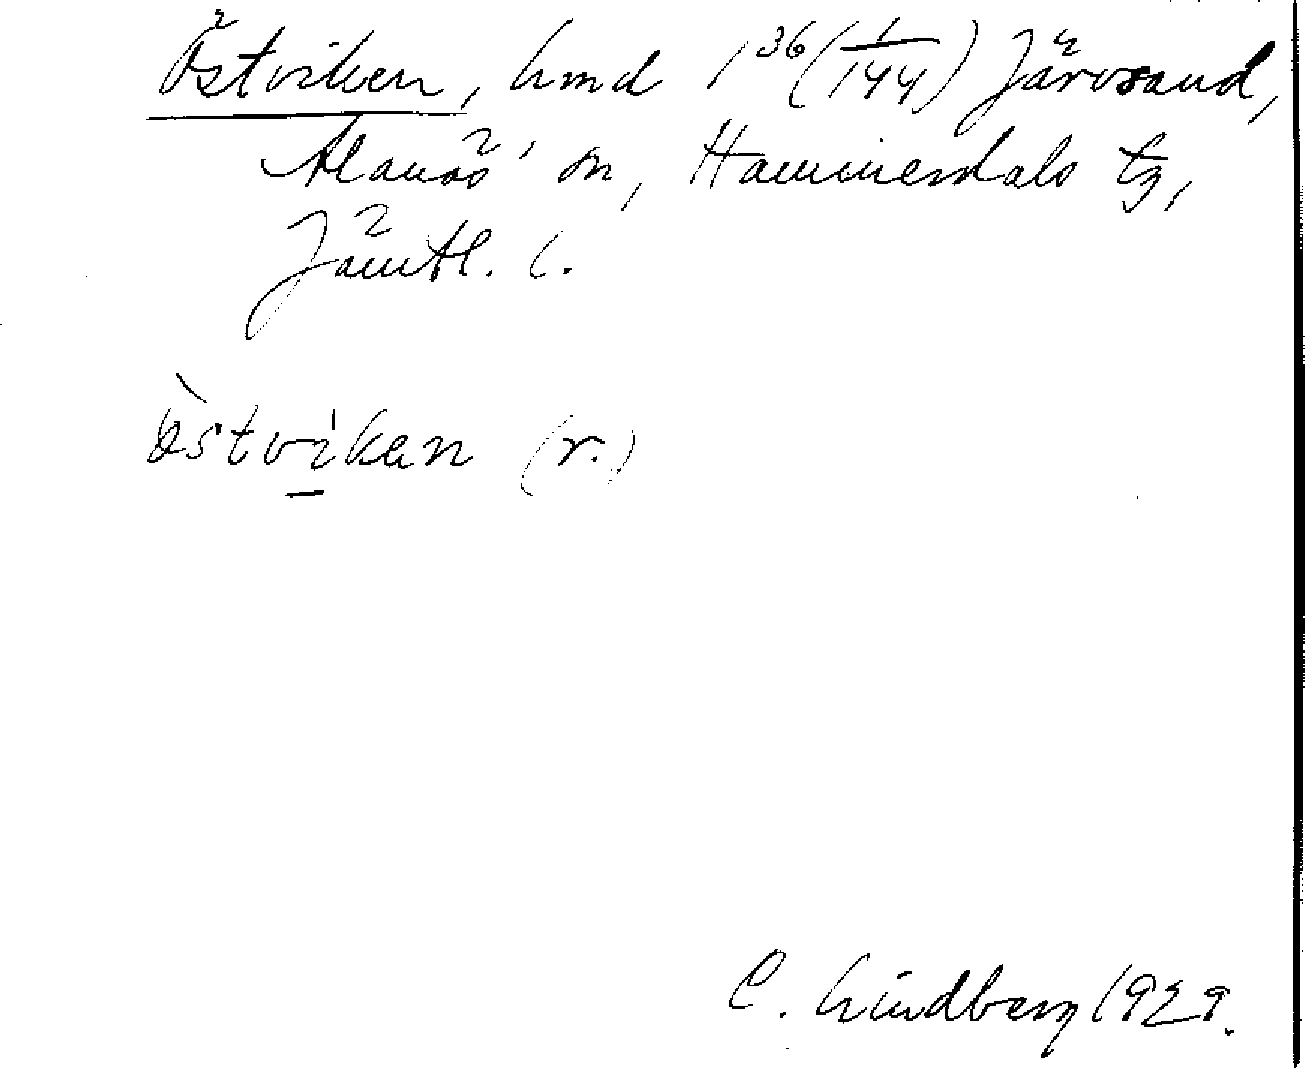 Östviken, hmd 1³⁶(1/144) Järvsand,
Alanäs' sn, Hammerdals tg,
Jämtl. l.
östvikan (r.)
C. Lindberg 1929.